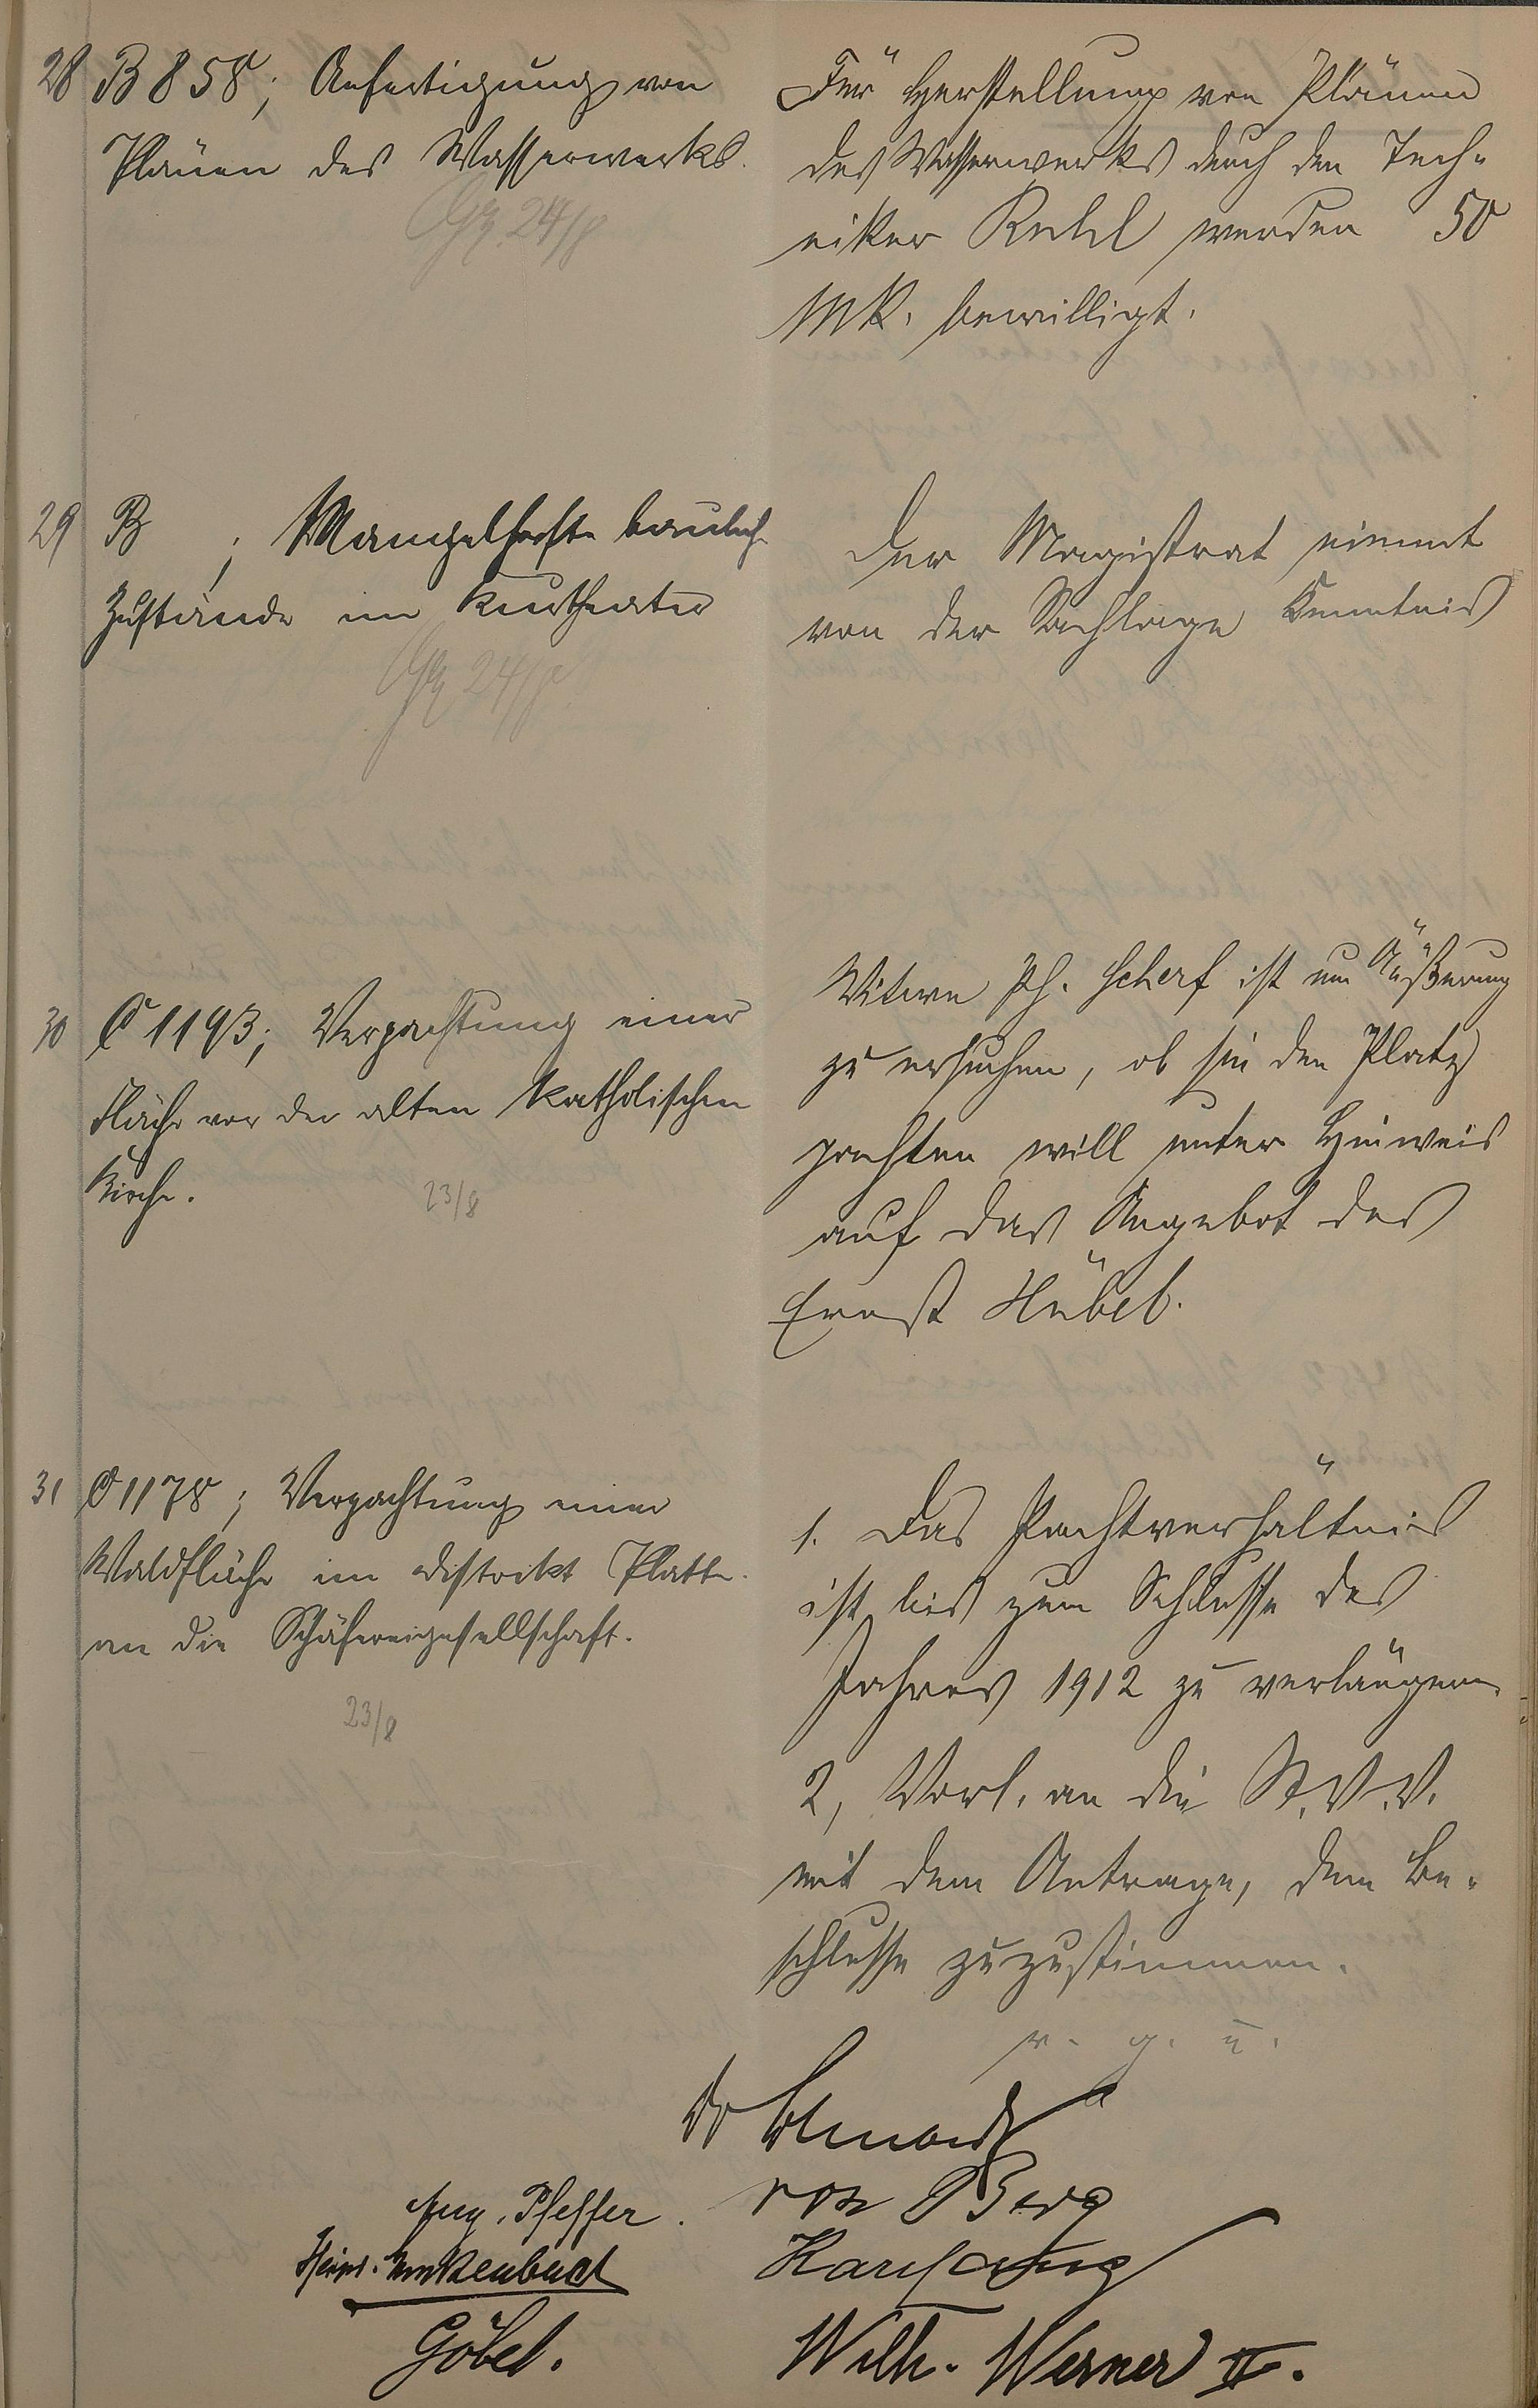 28 B 858; Anfertigung von
Plänen des Wasserwerks.
24/8
Für Herstellung von Plänen
des Wasserwerks durch den Tech-
niker werden 50
Mk. bewilligt.
29 B ; Mangelhafte bauliche
Zustände im Kurtheater
24/8
Der Magistrat nimmt
von der Sachlage Kenntnis
30 C 1193; Verpachtung einer
Fläche vor der alten katholischen
Kirche.
23/8
Witwe Ph. Scherf ist um Äußerung
zu ersuchen, ob sie den Platz
pachten will unter Hinweis
auf das Angebot des
Ernst Hübel.
31 C 1178; Verpachtung einer
Waldfläche im Distrikt Platte
an die Schäfereigesellschaft.
23/8
1. Das Pachtverhältnis
ist bis zum Schlusse des
Jahres 1912 zu verlängern.
2, Vorl. an die St.V.V.
mit dem Antrage, dem Be-
schlusse zuzustimmen.
v. g. u.
Dr
Aug. Pfeffer.
von Berg
Göbel.
Wilh. Werner II.